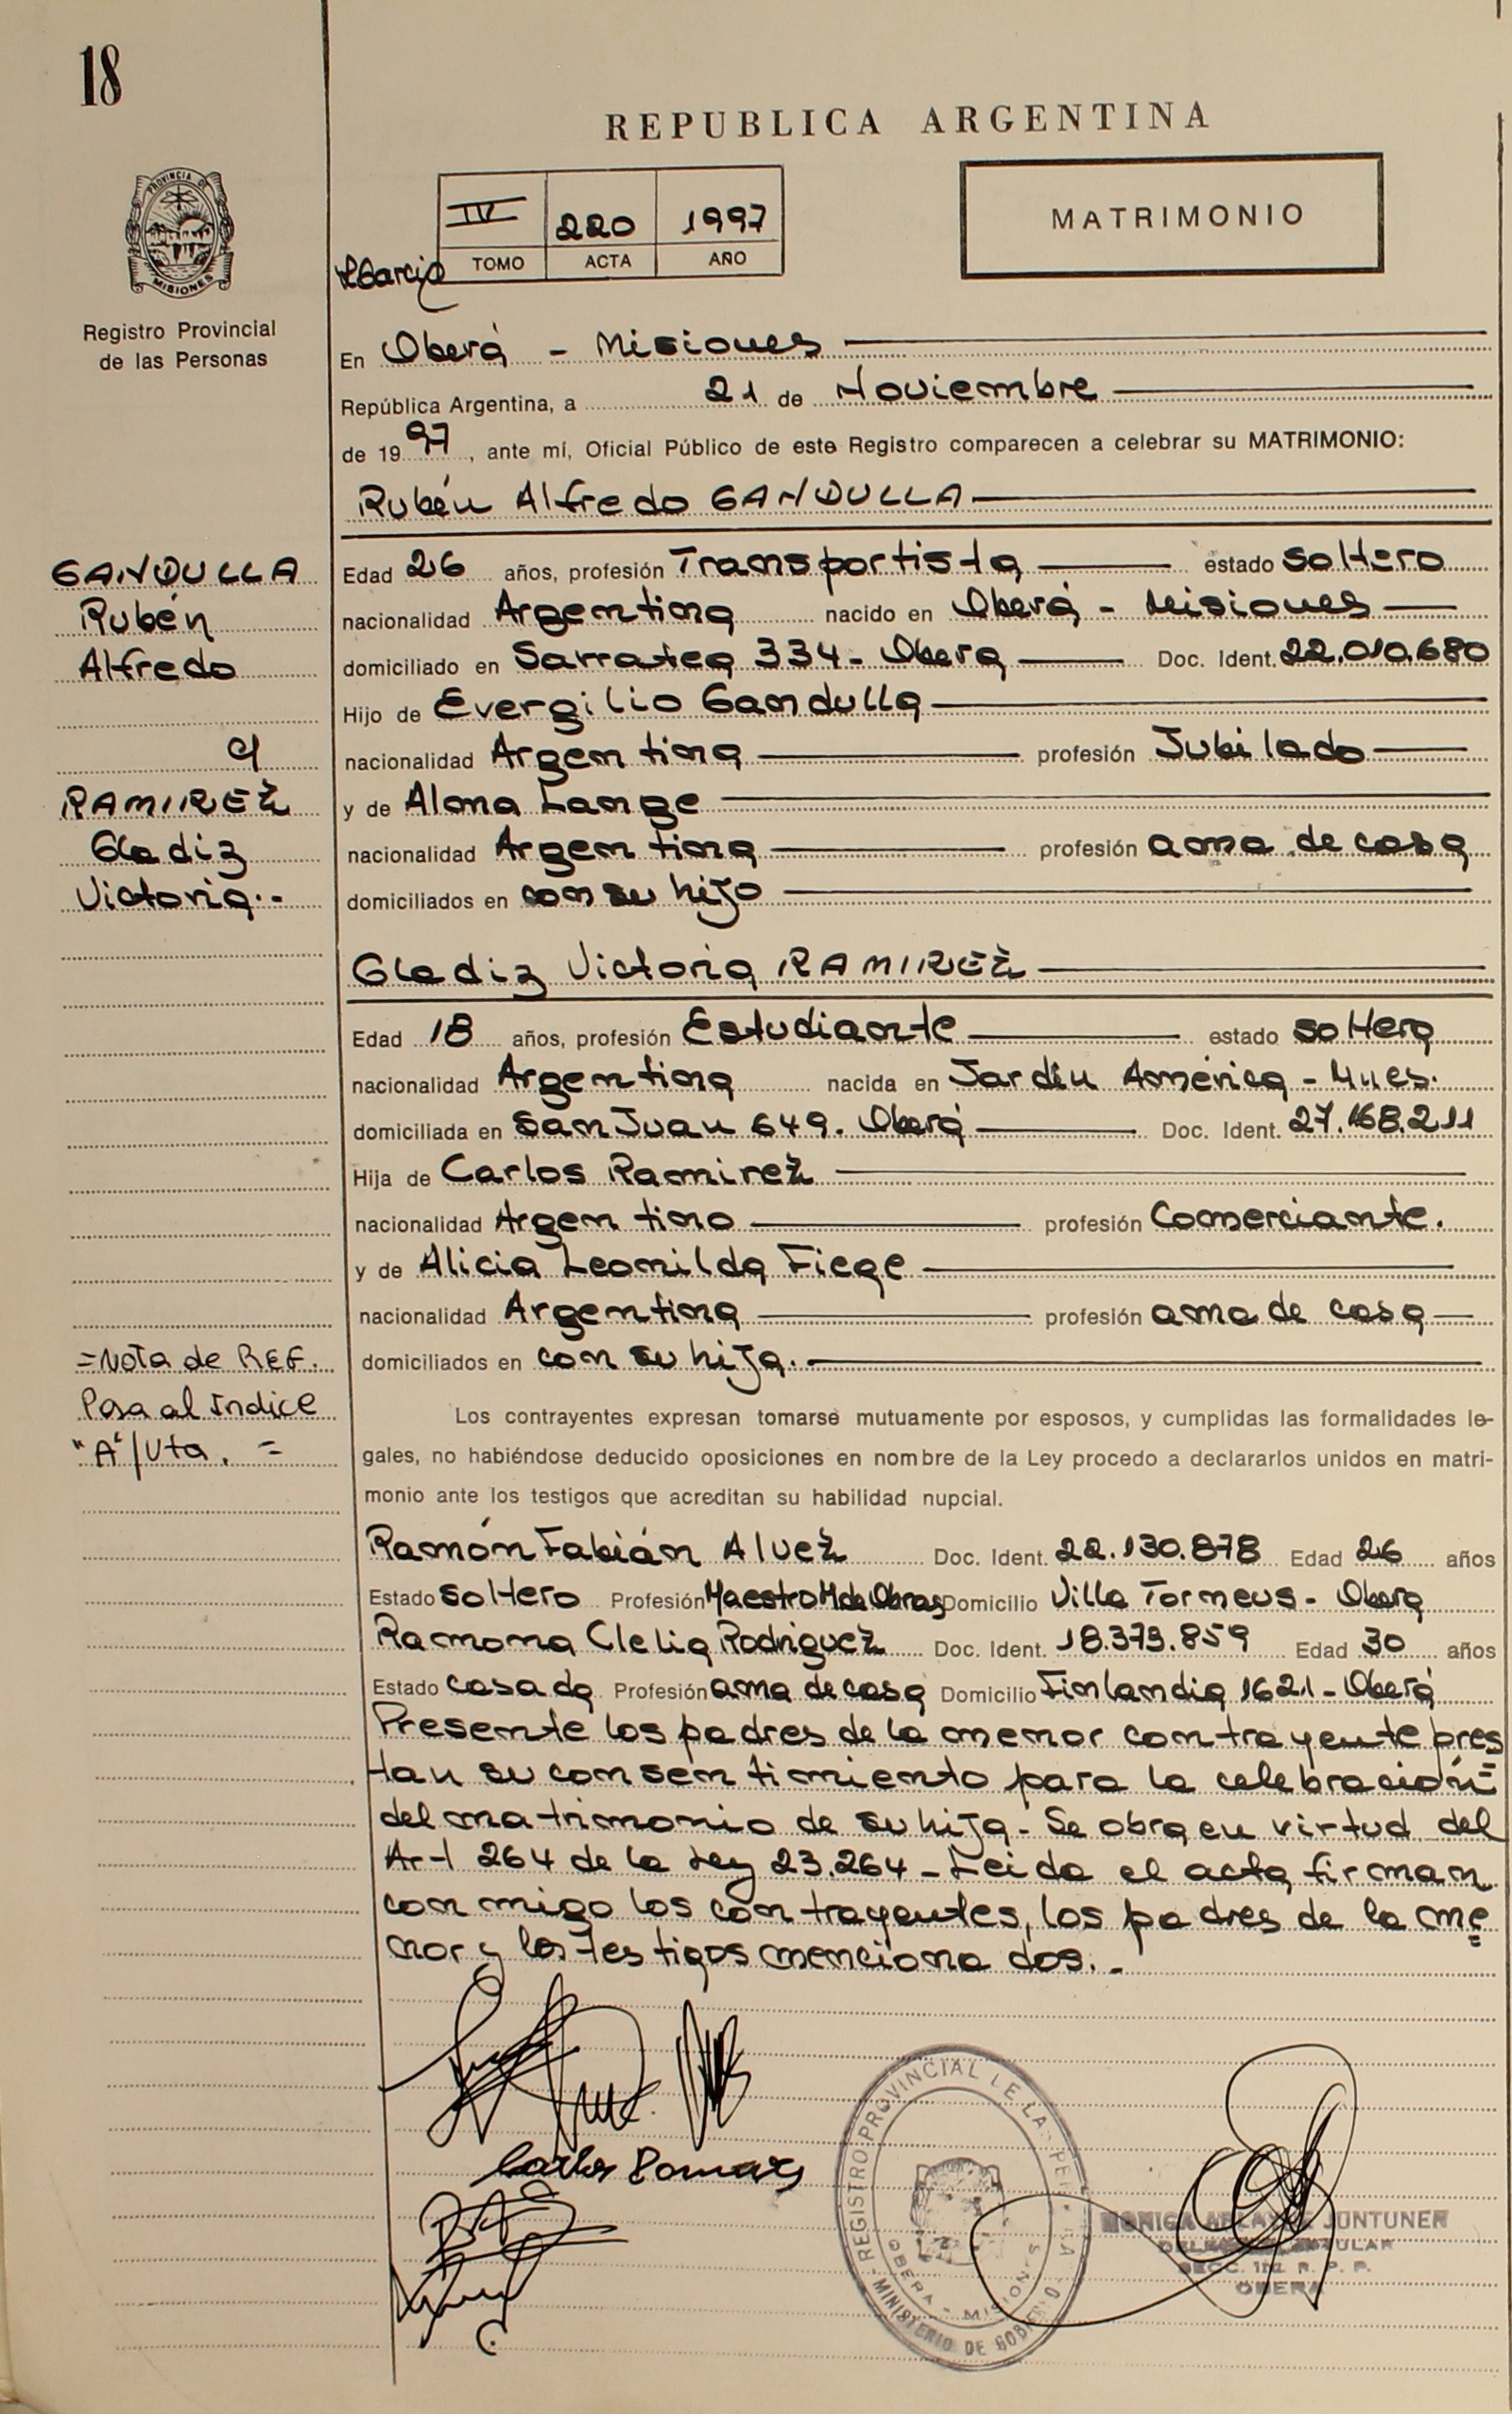 18
REPUBLICA ARGENTINA
PROVINCIA DE
MISIONES
Registro Provincial
de las Personas
IV 220 1997
TOMO ACTA AÑO
MATRIMONIO
En Oberá - Misiones
República Argentina, a 21 de Noviembre
de 1997, ante mí, Oficial Público de este Registro comparecen a celebrar su MATRIMONIO:
Rubén Alfredo GANDULLA
GANDULLA
Rubén
Alfredo
c/
RAMIREZ
Gladiz
Victoria.-
Edad 26 años, profesión Transportista estado soltero
nacionalidad Argentina nacido en Oberá - Misiones
domiciliado en Sarratea 334 - Oberá Doc. Ident. 22.010.680
Hijo de Evergilio Gandulla
nacionalidad Argentina profesión Jubilado
y de Alma Lange
nacionalidad Argentina profesión ama de casa
domiciliados en con su hijo
Gladiz Victoria RAMIREZ
Edad 18 años, profesión Estudiante estado soltera
nacionalidad Argentina nacida en Jardín América - Mnes.
domiciliada en San Juan 649. Oberá Doc. Ident. 27.168.211
Hija de Carlos Ramirez
nacionalidad Argentino profesión Comerciante.
y de Alicia Leonilda Fiege
nacionalidad Argentina profesión ama de casa
domiciliados en con su hija.
=Nota de REF.
Pasa al Indice
"A"/Vta. =
Los contrayentes expresan tomarse mutuamente por esposos, y cumplidas las formalidades le-
gales, no habiéndose deducido oposiciones en nombre de la Ley procedo a declararlos unidos en matri-
monio ante los testigos que acreditan su habilidad nupcial.
Ramón Fabián Alvez Doc. Ident. 22.130.878 Edad 26 años
Estado soltero Profesión Maestro M de Obras Domicilio Villa Torneus - Oberá
Ramona Clelia Rodriguez Doc. Ident. 18.373.859 Edad 30 años
Estado casada Profesión ama de casa Domicilio Finlandia 1621 - Oberá
Presente los padres de la menor contrayente pres
tan su consentimiento para la celebración
del matrimonio de su hija - Se obra en virtud del
Art 264 de la Ley 23.264 - Leida el acta firman
conmigo los contrayentes, los padres de la me
nor y los testigos mencionados.-
REGISTRO PROVINCIAL DE LAS PER
OBERA - MISIONES
MINISTERIO DE GOBIERNO
MONICA JUNTUNEN
TITULAR
SECC. R. P. P.
OBERA